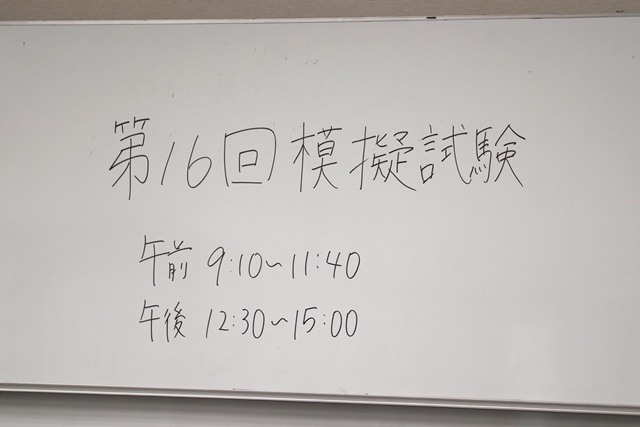 第16回模擬試験
午前 9:10〜11:40
午後 12:30〜15:00